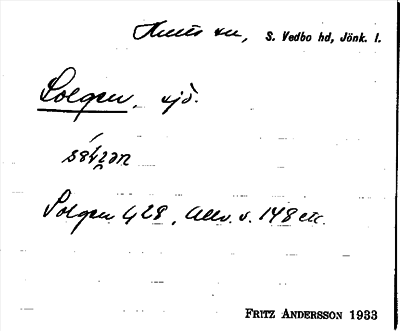 sn, S. Vedbo hd, Jönk. l.
Solgen, sjö.
Solgen 428, Allv. s. 148 etc.
FRITZ ANDERSSON 1933